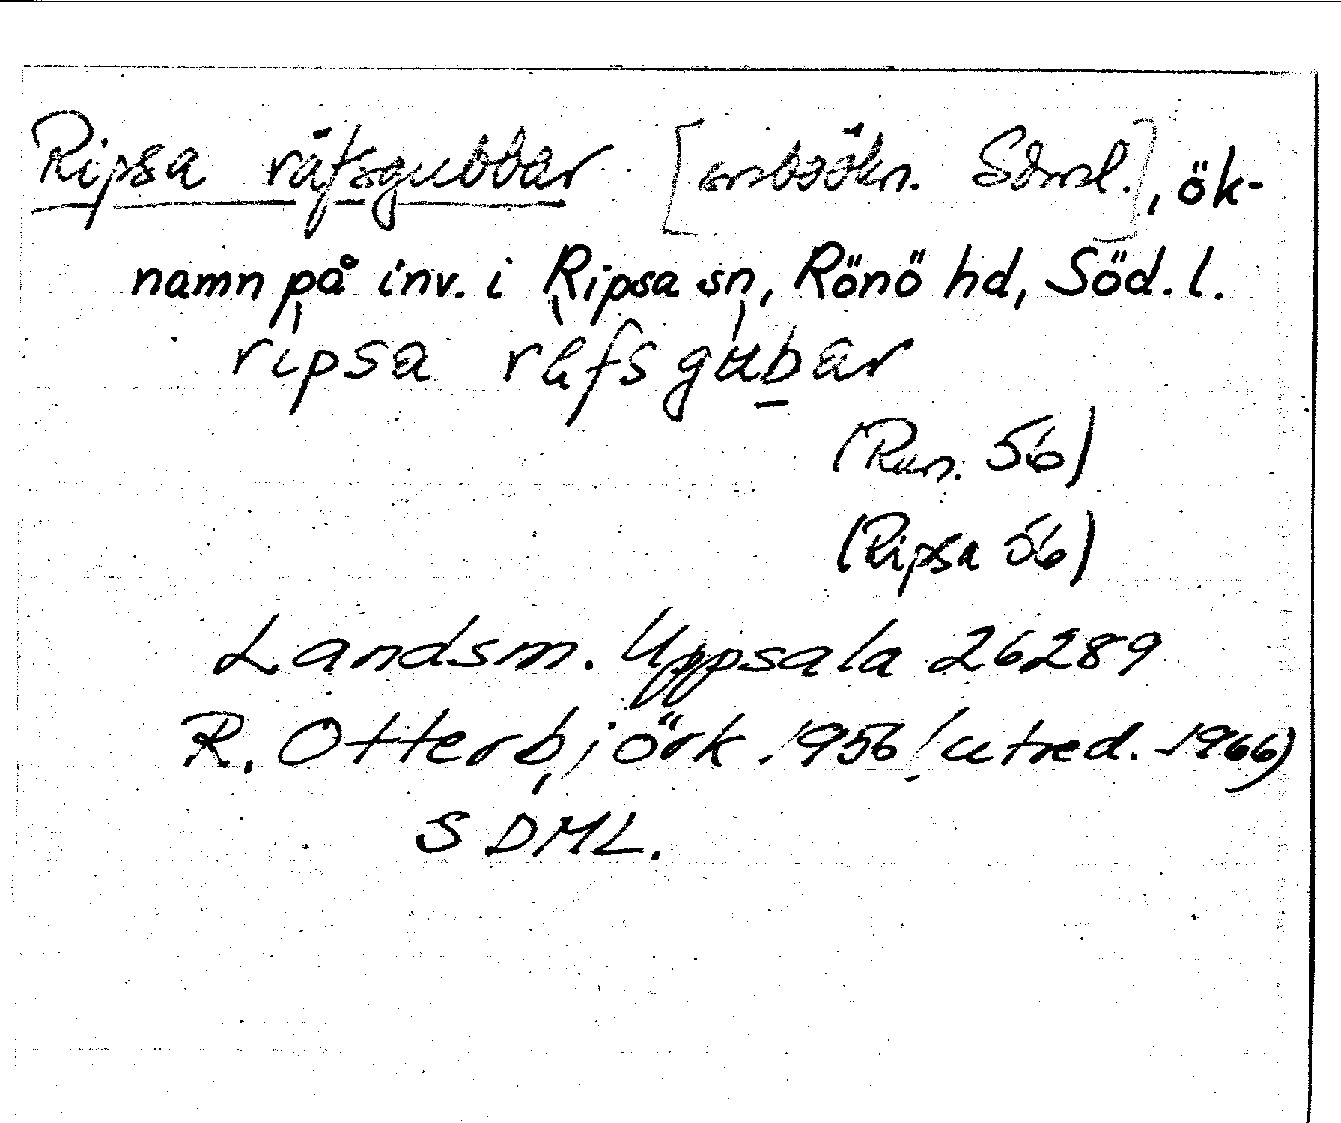 Ripsa räfsgubbar [inbsökn. Sörml.], ök-
namn på inv. i Ripsa sn, Rönö hd, Söd. l.
ripsa räfsgubar
(Run. 56)
(Ripsa 56)
Landsm. Uppsala 26289
R. Otterbjörk 1956 (utred. 1966)
SDML.